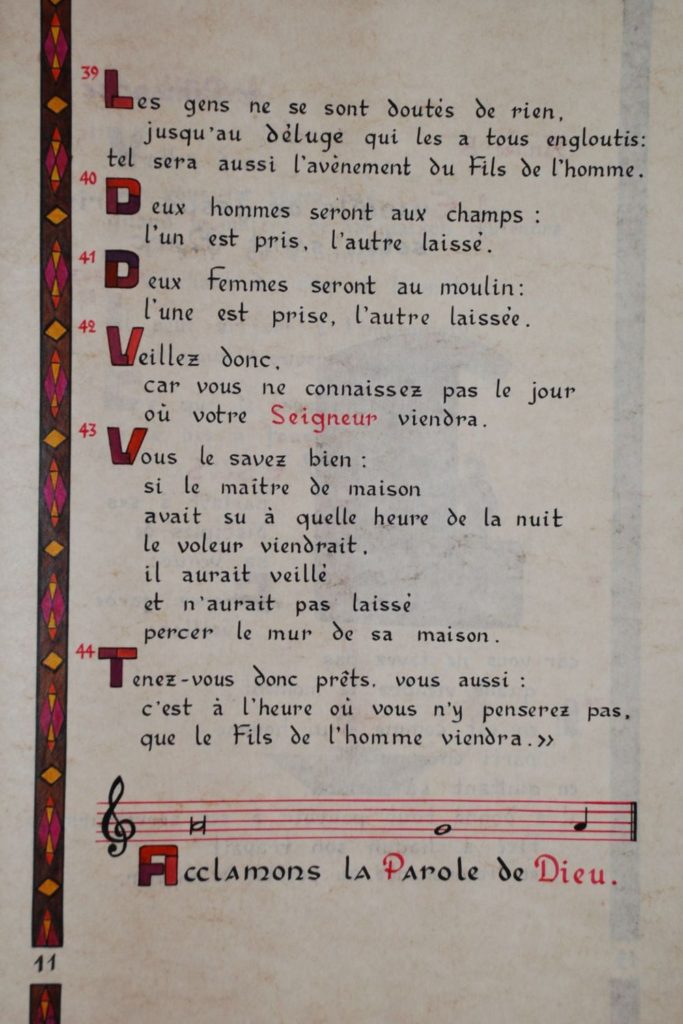 39 Les gens ne se sont doutés de rien,
jusqu'au déluge qui les a tous engloutis:
tel sera aussi l'avènement du Fils de l'homme.
40 Deux hommes seront aux champs :
l'un est pris, l'autre laissé.
41 Deux Femmes seront au moulin:
l'une est prise, l'autre laissée.
42 Veillez donc,
car vous ne connaissez pas le jour
où votre Seigneur viendra.
43 Vous le savez bien :
si le maître de maison
avait su à quelle heure de la nuit
le voleur viendrait,
il aurait veillé
et n'aurait pas laissé
percer le mur de sa maison.
44 Tenez-vous donc prêts, vous aussi :
c'est à l'heure où vous n'y penserez pas,
que le Fils de l'homme viendra.»
Acclamons la Parole de Dieu.
11